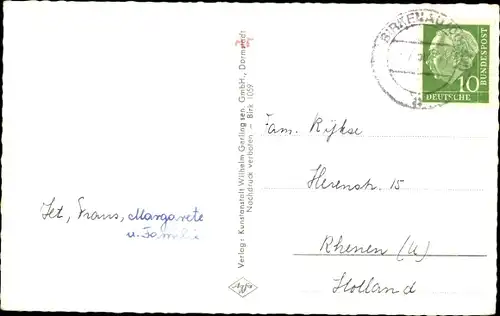 BIRKENAU
10
DEUTSCHE
BUNDESPOST
Fam. Rijkse
Herenstr. 15
Rhenen (U)
Holland
Jet, Frans, Margarete
u. Famili
Verlag: Kunstanstalt Wilhelm Gerling sen. GmbH., Darmstadt
Nachdruck verboten - Birk 1059